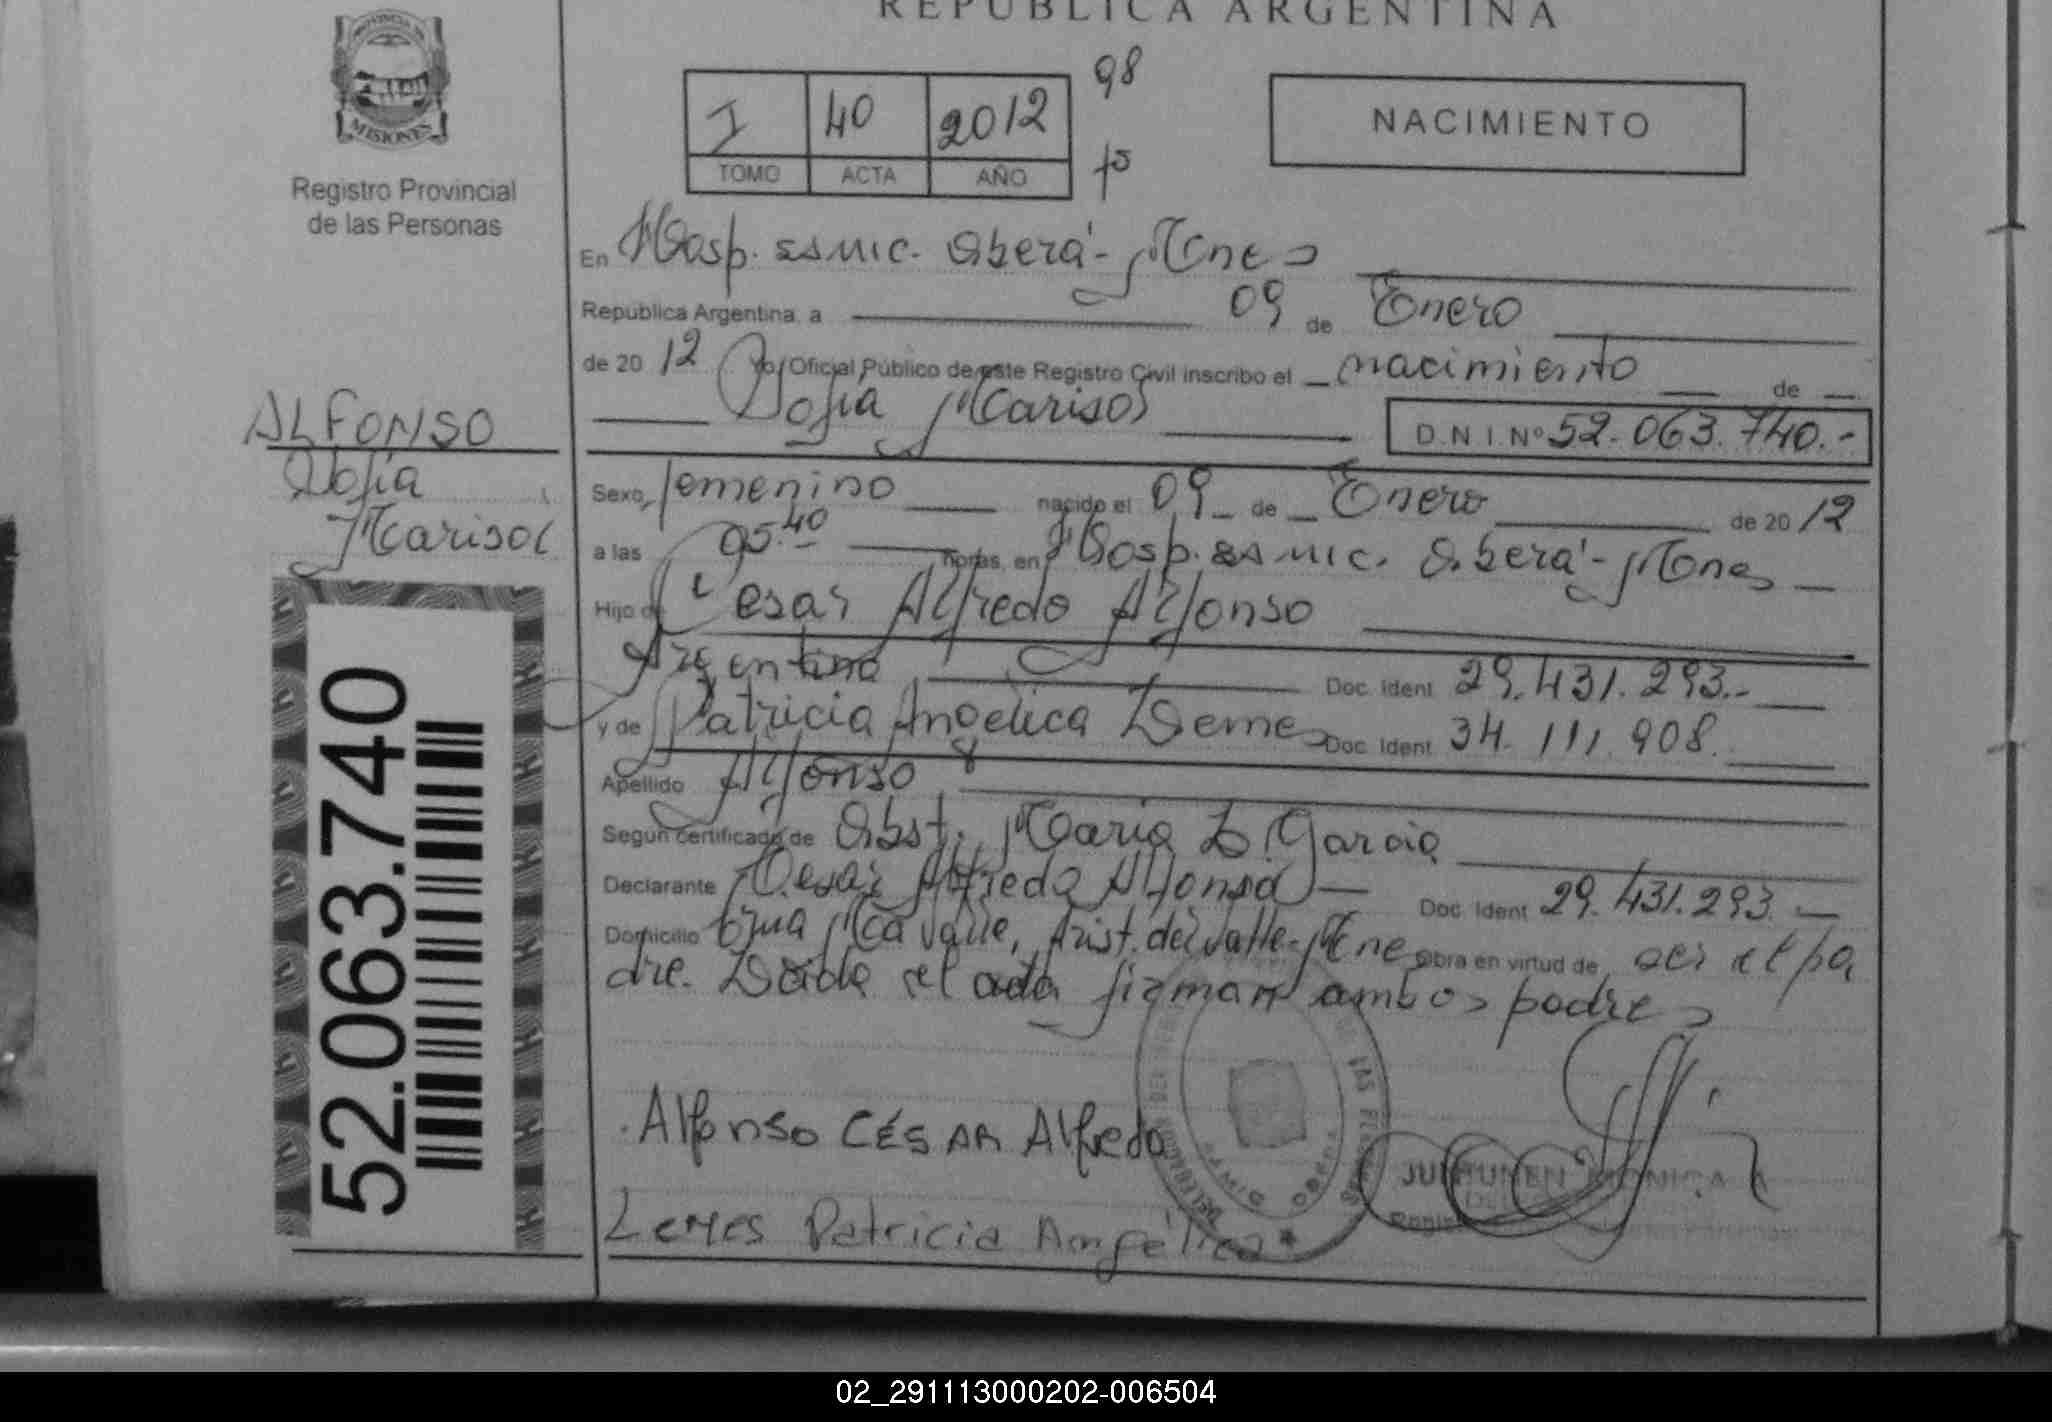 REPUBLICA ARGENTINA
PROVINCIA DE
MISIONES
Registro Provincial
de las Personas
I 40 2012
TOMO ACTA AÑO
98
fs
NACIMIENTO
En Hosp. ssmic. Oberá - Mnes
República Argentina, a 09 de Enero
de 20 12 Yo, Oficial Público de este Registro Civil inscribo el nacimiento de
Sofía Marisol D.N.I.Nº 52.063.740.-
ALFONSO
Sofía
Marisol
Sexo, femenino nacido el 09 de Enero de 20 12
a las 05.40 horas, en Hosp. ssmic. Oberá - Mnes
Hijo de Cesar Alfredo Alfonso
Argentino Doc. Ident 29.431.293.-
y de Patricia Angelica Lemes Doc. Ident 34.111.908.
Apellido Alfonso
Según certificado de Obst. Maria L. Garcia
Declarante Cesar Alfredo Alfonso Doc. Ident 29.431.293.
Domicilio valle, Arist. del valle - Mnes Obra en virtud de ser el pa
dre. Leida el acta firman ambos padres
52.063.740
Alfonso CÉSAR Alfredo
Lemes Patricia Angélica
MONICA A
02_291113000202-006504